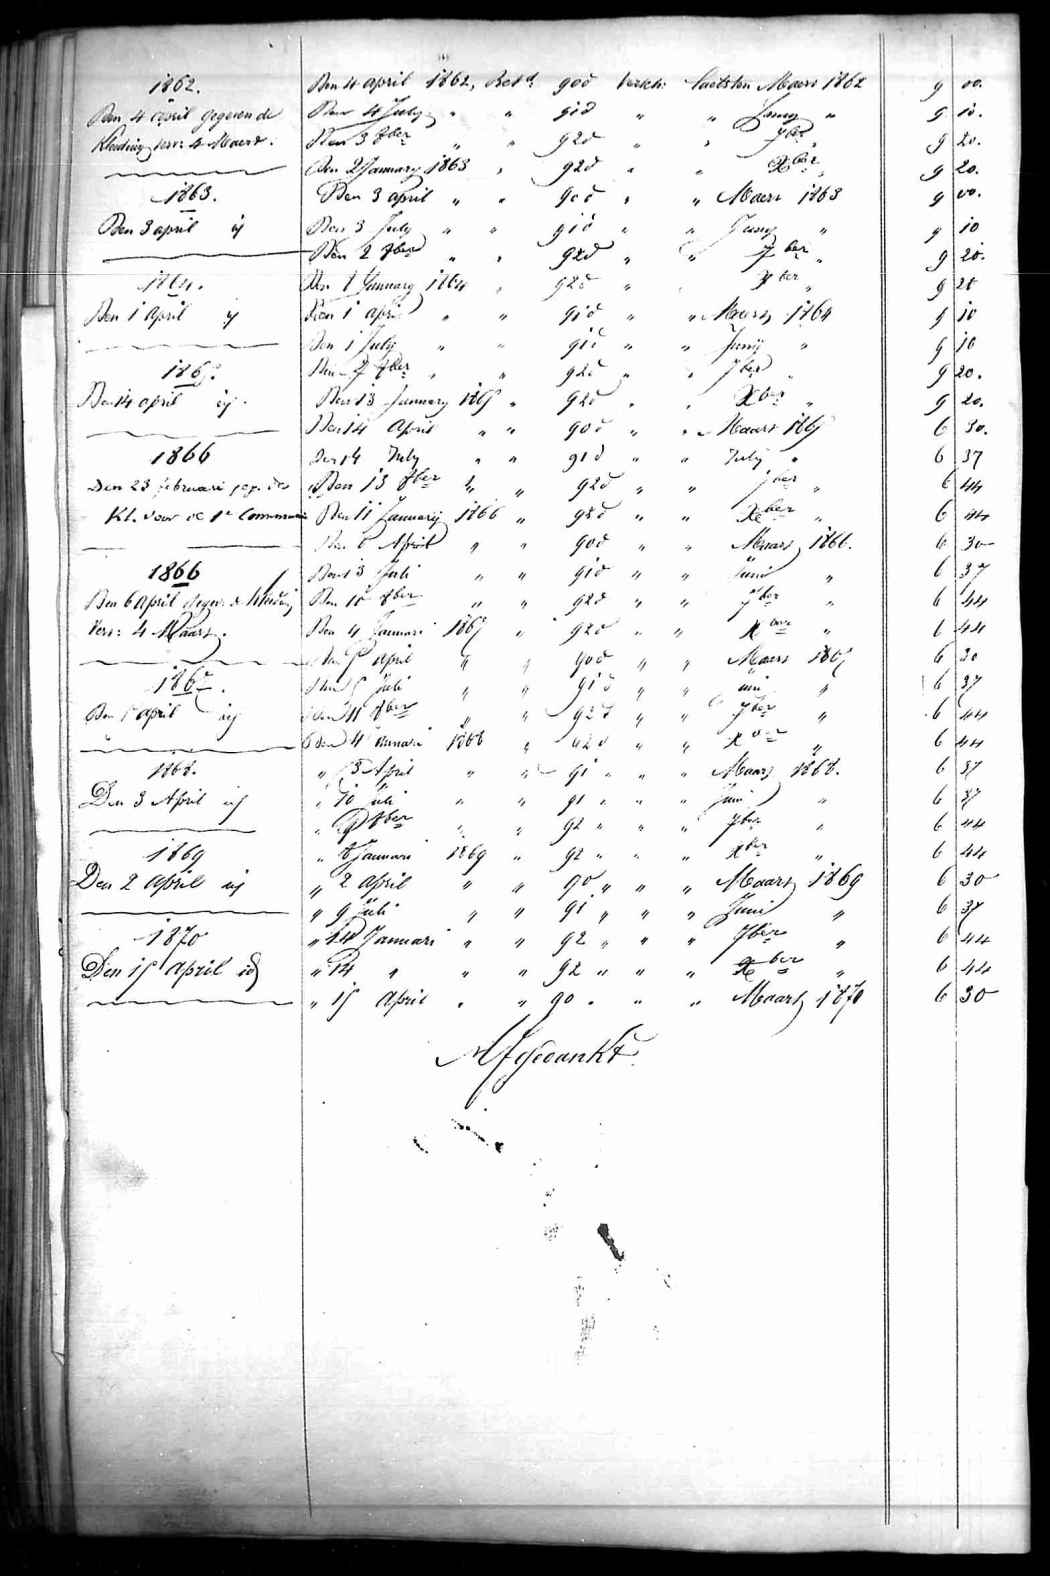 1862. Den 4 april 1862, Bet.d 90d Versch: laetsten Maers 1862 9 00.
Den 4 april gegeven de Den 4 July " " 91d " " Juny " 9 10.
Kleeding vers: 4 Maert. Den 3 8ber " " 92d " " 7ber 9 20.
Den 2 January 1863 " 92d " " Xber 9 20.
1863. Den 3 april " " 90d " " Maers 1863 9 00.
Den 3 april ij Den 3 July " " 91d " " Juny " 9 10
Den 2 8ber " " 92d " " 7ber " 9 20.
1864. Den 1 January 1864 " 92d " " Xber " 9 20
Den 1 April ij Den 1 April " " 91d " " Maers 1864 9 10
Den 1 July " " 91d " " Junij " 9 10
1865. Den 7 8ber " " 92d " " 7ber " 9 20.
Den 14 april ij. Den 13 January 1865 " 92d " " Xber " 9 20.
Den 14 April " " 90d " " Maart 1865 6 30.
1866 Den 14 July " " 91d " " July " 6 37
Den 23 februari geg. des Den 13 8ber " " 92d " " 7ber " 6 44
Kl. voor de 1e Communie Den 11 Januarij 1866 " 92d " " Xber " 6 44
Den 6 April " " 90d " " Maart 1866. 6 30
1866 Den 13 Juli " " 91d " " Juni " 6 37
Den 6 April gegev. de Kleeding Den 10 8ber " " 92d " " 7ber " 6 44
Vers: 4 Maart. Den 4 Januari 1867 " 92d " " Xber " 6 44
Den 5 april " " 90d " " Maers 1867 6 30
1867. Den 5 Juli " " 91d " " Juni " 6 37
Den 5 april ij Den 11 8ber " " 92d " " 7ber " 6 44
Den 4 Januari 1868 " 92d " " Xber " 6 44
1868. " 3 April " " 91 " " " Maart 1868. 6 37
Den 3 April ij " 10 Juli " " 91 " " " Juni " 6 37
" 9 8ber " " 92 " " " 7ber " 6 44
1869 " 8 Januari 1869 " 92 " " " Xber " 6 44
Den 2 April ij " 2 April " " 90 " " " Maart 1869 6 30
" 9 Juli " " 91 " " " Juni " 6 37
1870 " 14 Januari " " 92 " " " 7ber " 6 44
Den 15 April id " 14 " " " 92 " " " Xber " 6 44
" 15 April " " 90 " " " Maart 1870 6 30
Afgedankt.